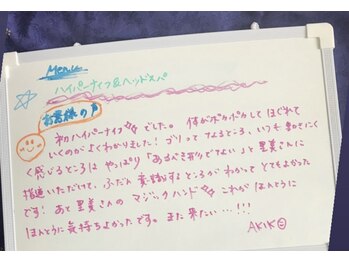 Menu
ハイパーナイフ&ヘッドスパ
お客様の声
初ハイパーナイフでした。体がポカポカしてほぐれて
いくのがよくわかりました!ゴリってなるところ、いつも動きにく
く感じるところは やっぱり「あるべき形でない」と里美さんに
指通いただいて、ふだん意識するところがわかって とてもよかった
です!あと里美さんの マジックハンド これがほんとうに
ほんとうに気持ちよかったです。また来たい…!!!
AKIKO